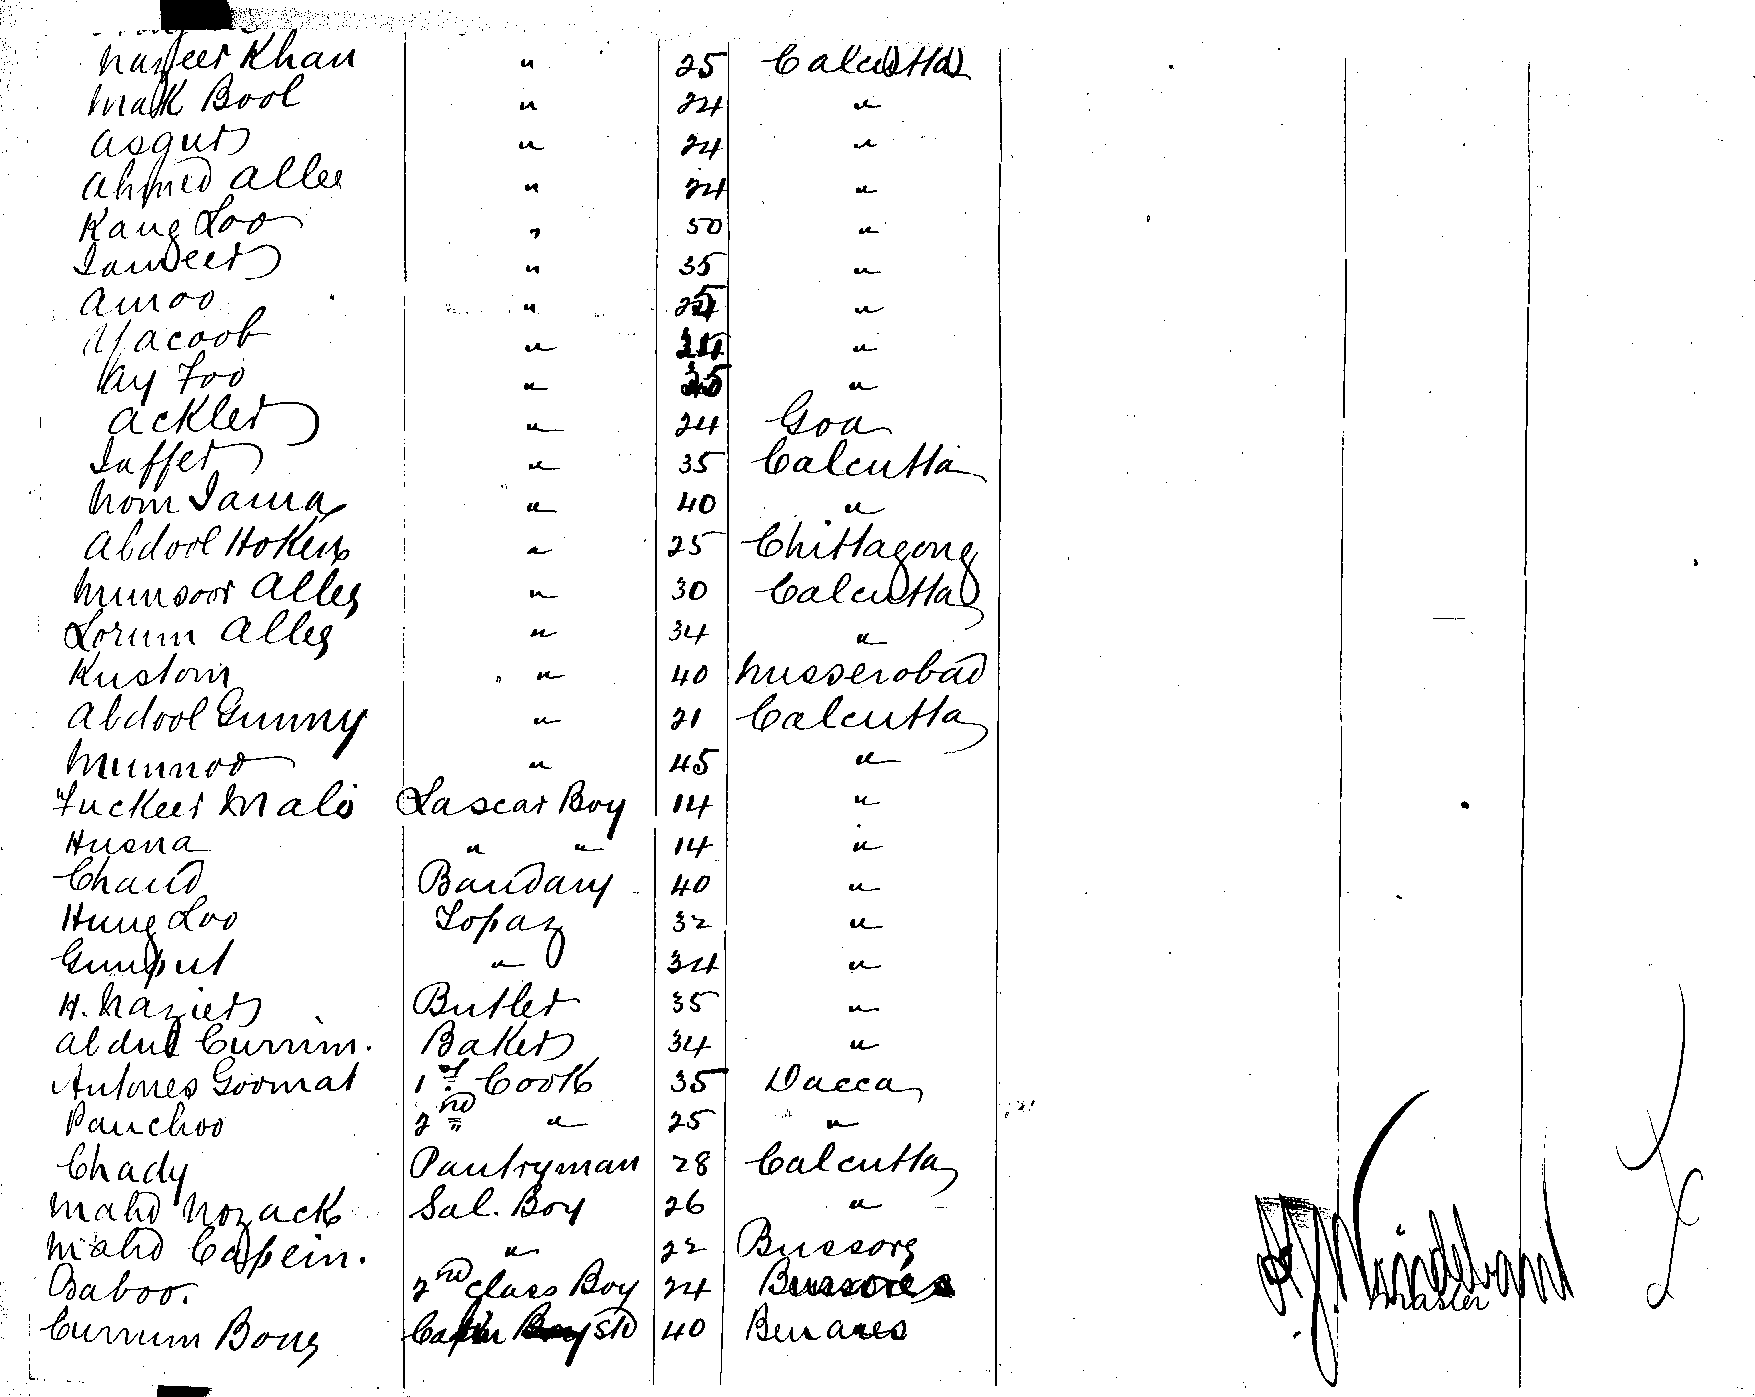 Nazeer Khan " 25 Calcutta
Mak Bool " 24 "
Asgur " 24 "
Ahmed Allee " 24 "
Kang Loo " 50 "
Jandeer " 35 "
Amoo " "
Yacoob " "
Ay Foo " "
Ackler " 24 Goa
Jaffer " 35 Calcutta
Nom Jama " 40 "
Abdool Hokim " 25 Chittagong
Munsoor Alley " 30 Calcutta
Lorum Alley " 34 "
Rustom " 40 Nusserobad
Abdool Gunny " 21 Calcutta
Munnoo " 45 "
Fuckeer Mali Lascar Boy 14 "
Husna " " 14 "
Chand Bandary 40 "
Hung Loo Topaz 32 "
Gunput " 34 "
H. Nazier Butler 35 "
Abdul Currim. Baker 34 "
Antones Goomat 1st Cook 35 Dacca
Panchoo 2nd " 25 "
Chady Pantryman 28 Calcutta
Mahd Nozack Sal. Boy 26 "
Mahd Capein. " 22 Bussorg
Baboo. 2nd Class Boy 24
Currum Bong 40 Benares
Master